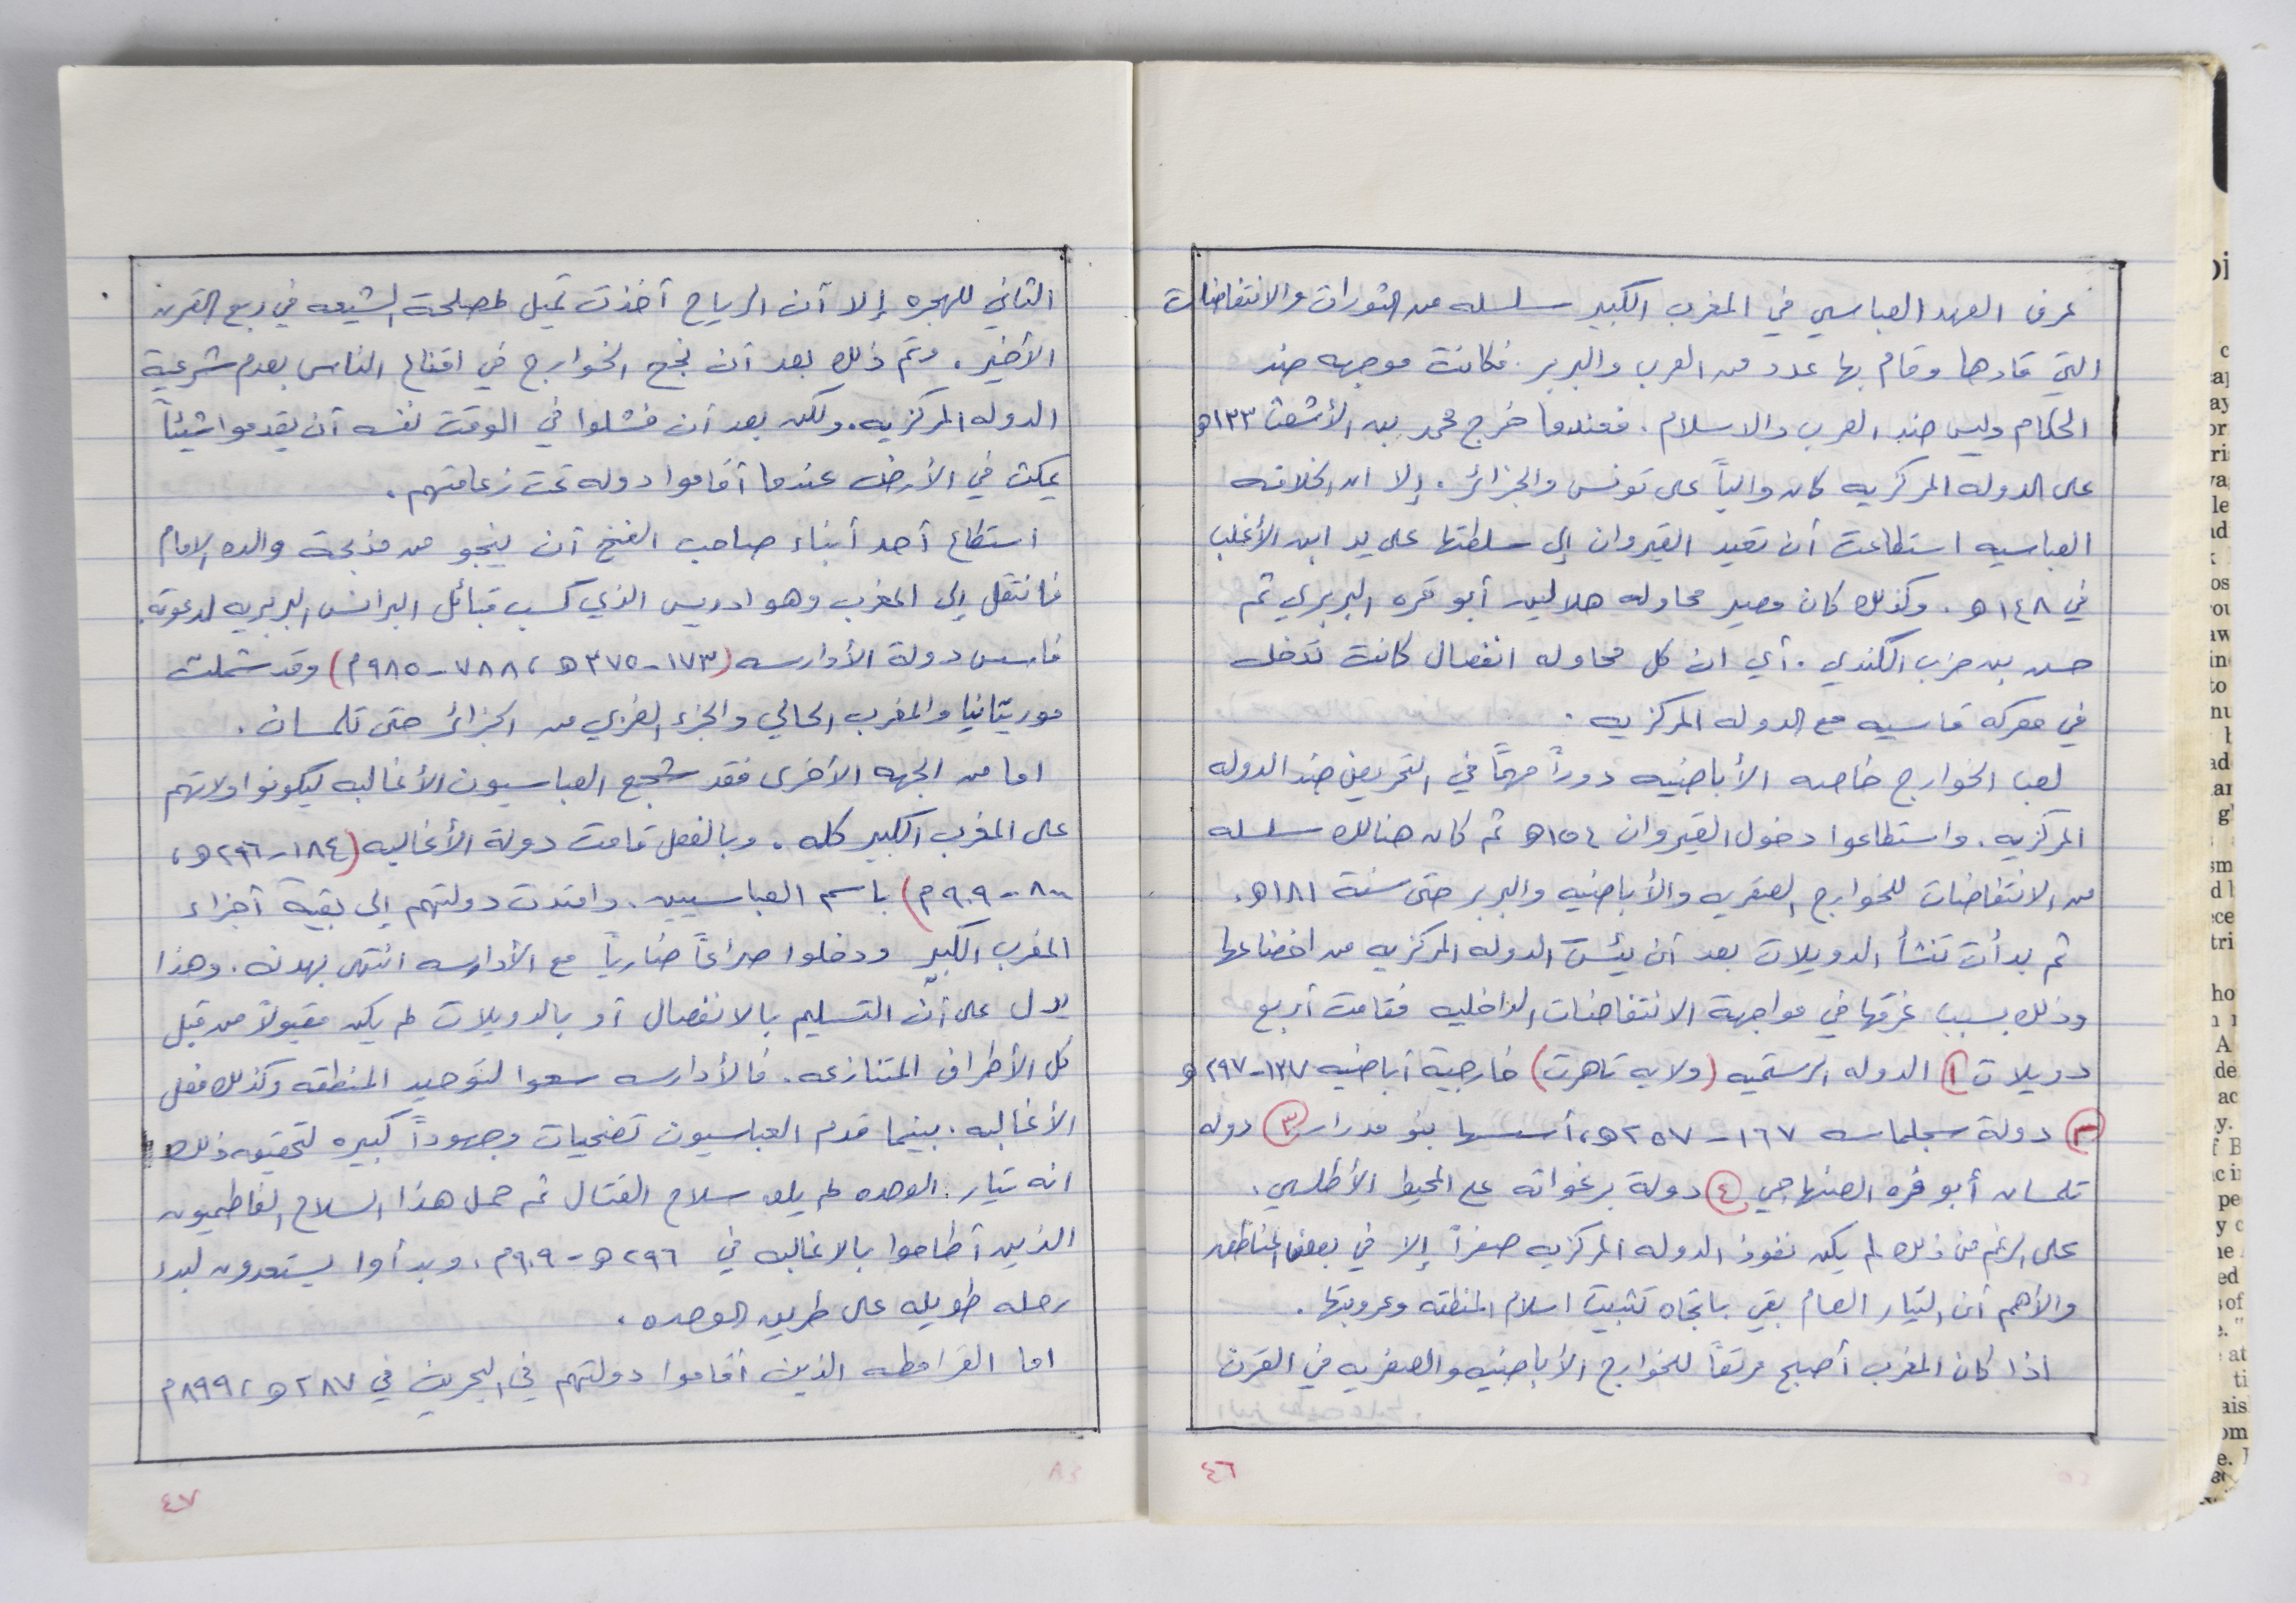 عرف العهد العباسي في المغرب الكبير سلسله من الثورات والانتفاضات
التي قادها وقام بها عدد من العرب والبربر. فكانت موجهه ضد
الحكام وليس ضد العرب والاسلام. فعندما خرج محمد بن الأشعث ١٣٣هـ
على الدوله المركزيه كان والياً على تونس والجزائر. إلا ان الخلافه
العباسيه استطاعت أن تعيد القيروان إلى سلطتها على يد ابن الأغلب
في ١٤٨هـ. وكذلك كان مصير محاوله هلاليه أبو قره البربري ثم
حسن بن حرب الكندي. أي ان كل محاوله انفصال كانت تدخل
في معركه قاسيه مع الدوله المركزيه.
لعب الخوارج خاصه الأباضيه دوراً مهمّاً في التحريض ضد الدوله
المركزيه. واستطاعوا دخول القيروان ١٥٤هـ ثم كان هنالك سلسله
من الانتفاضات للخوارج الصفريه والأباضيه والبربر حتى سنة ١٨١هـ.
ثم بدأت تنشأ الدويلات بعد أن يئست الدوله المركزيه من اخضاعها
وذلك بسبب غرقها في مواجهة الانتفاضات الداخليه فقامت أربع
دويلات ١ الدوله الرستميه (ولايه تاهرت) خارجية أباضيه ١٣٧-٢٩٧هـ
٢ دولة سجلماسه ١٦٧-٢٥٧هـ، أسسها بنو مدرار ٣ دوله
تلمسان أبو قره الصنهاجي ٤ دولة برغواته على المحيط الأطلسي.
على الرغم من ذلك لم يكن نفوذ الدوله المركزيه صفراً إلا في بعض المناطق
والأهم أن التيار العام بقي باتجاه تثبيت اسلام المنطقه وعروبتها.
اذا كان المغرب أصبح مرتعاً للخوارج الأباضيه والصفريه في القرن
٤٦
الثاني للهجره إلا أن الرياح أخذت تميل لمصلحة الشيعه في ربع القرن
الأخير. وتم ذلك بعد أن نجح الخوارج في اقناع الناس بعدم شرعية
الدوله المركزيه. ولكن بعد أن فشلوا في الوقت نفسه أن يقدموا شيئاً
يمكث في الأرض عندما أقاموا دوله تحت زعامتهم.
استطاع أحد أبناء صاحب الفخ أن ينجو من مذبحة والده الامام
فانتقل إلى المغرب وهو ادريس الذي كسب قبائل البرانس البربريه لدعوته.
فاسس دولة الأدارسه (١٧٣-٣٧٥هـ، ٧٨٨-٩٨٥م) وقد شملت
موريتانيا والمغرب الحالي والجزء الغربي من الجزائر حتى تلمسان.
اما من الجهه الأخرى فقد شجع العباسيون الأغالبه ليكونوا ولاتهم
على المغرب الكبير كله. وبالفعل قامت دولة الأغالبه (١٨٤-٢٩٦هـ،
٨٠٠-٩٠٩م) باسم العباسيين. وامتدت دولتهم إلى بقية أجزاء
المغرب الكبير ودخلوا صراعاً ضارياً مع الأدارسه انتهى بهدنه. وهذا
يدل على أنّ التسليم بالانفصال أو بالدويلات لم يكن مقبولاً من قبل
كل الأطراف المتنازعه. فالأدارسه سعوا لتوحيد المنطقه وكذلك فعل
الأغالبه. بينما قدم العباسيون تضحيات وجهوداً كبيره لتحقيق ذلك
انه تيار الوحده لم يلق سلاح القتال ثم حمل هذا السلاح الفاطميون
الذين أطاحوا بالاغالبه في ٢٩٦هـ-٩٠٩م. وبدأوا يستعدون لبدء
رحله طويله على طريق الوحده.
اما القرامطه الذين أقاموا دولتهم في البحرين في ٢٨٧هـ، ٨٩٩م
٤٧